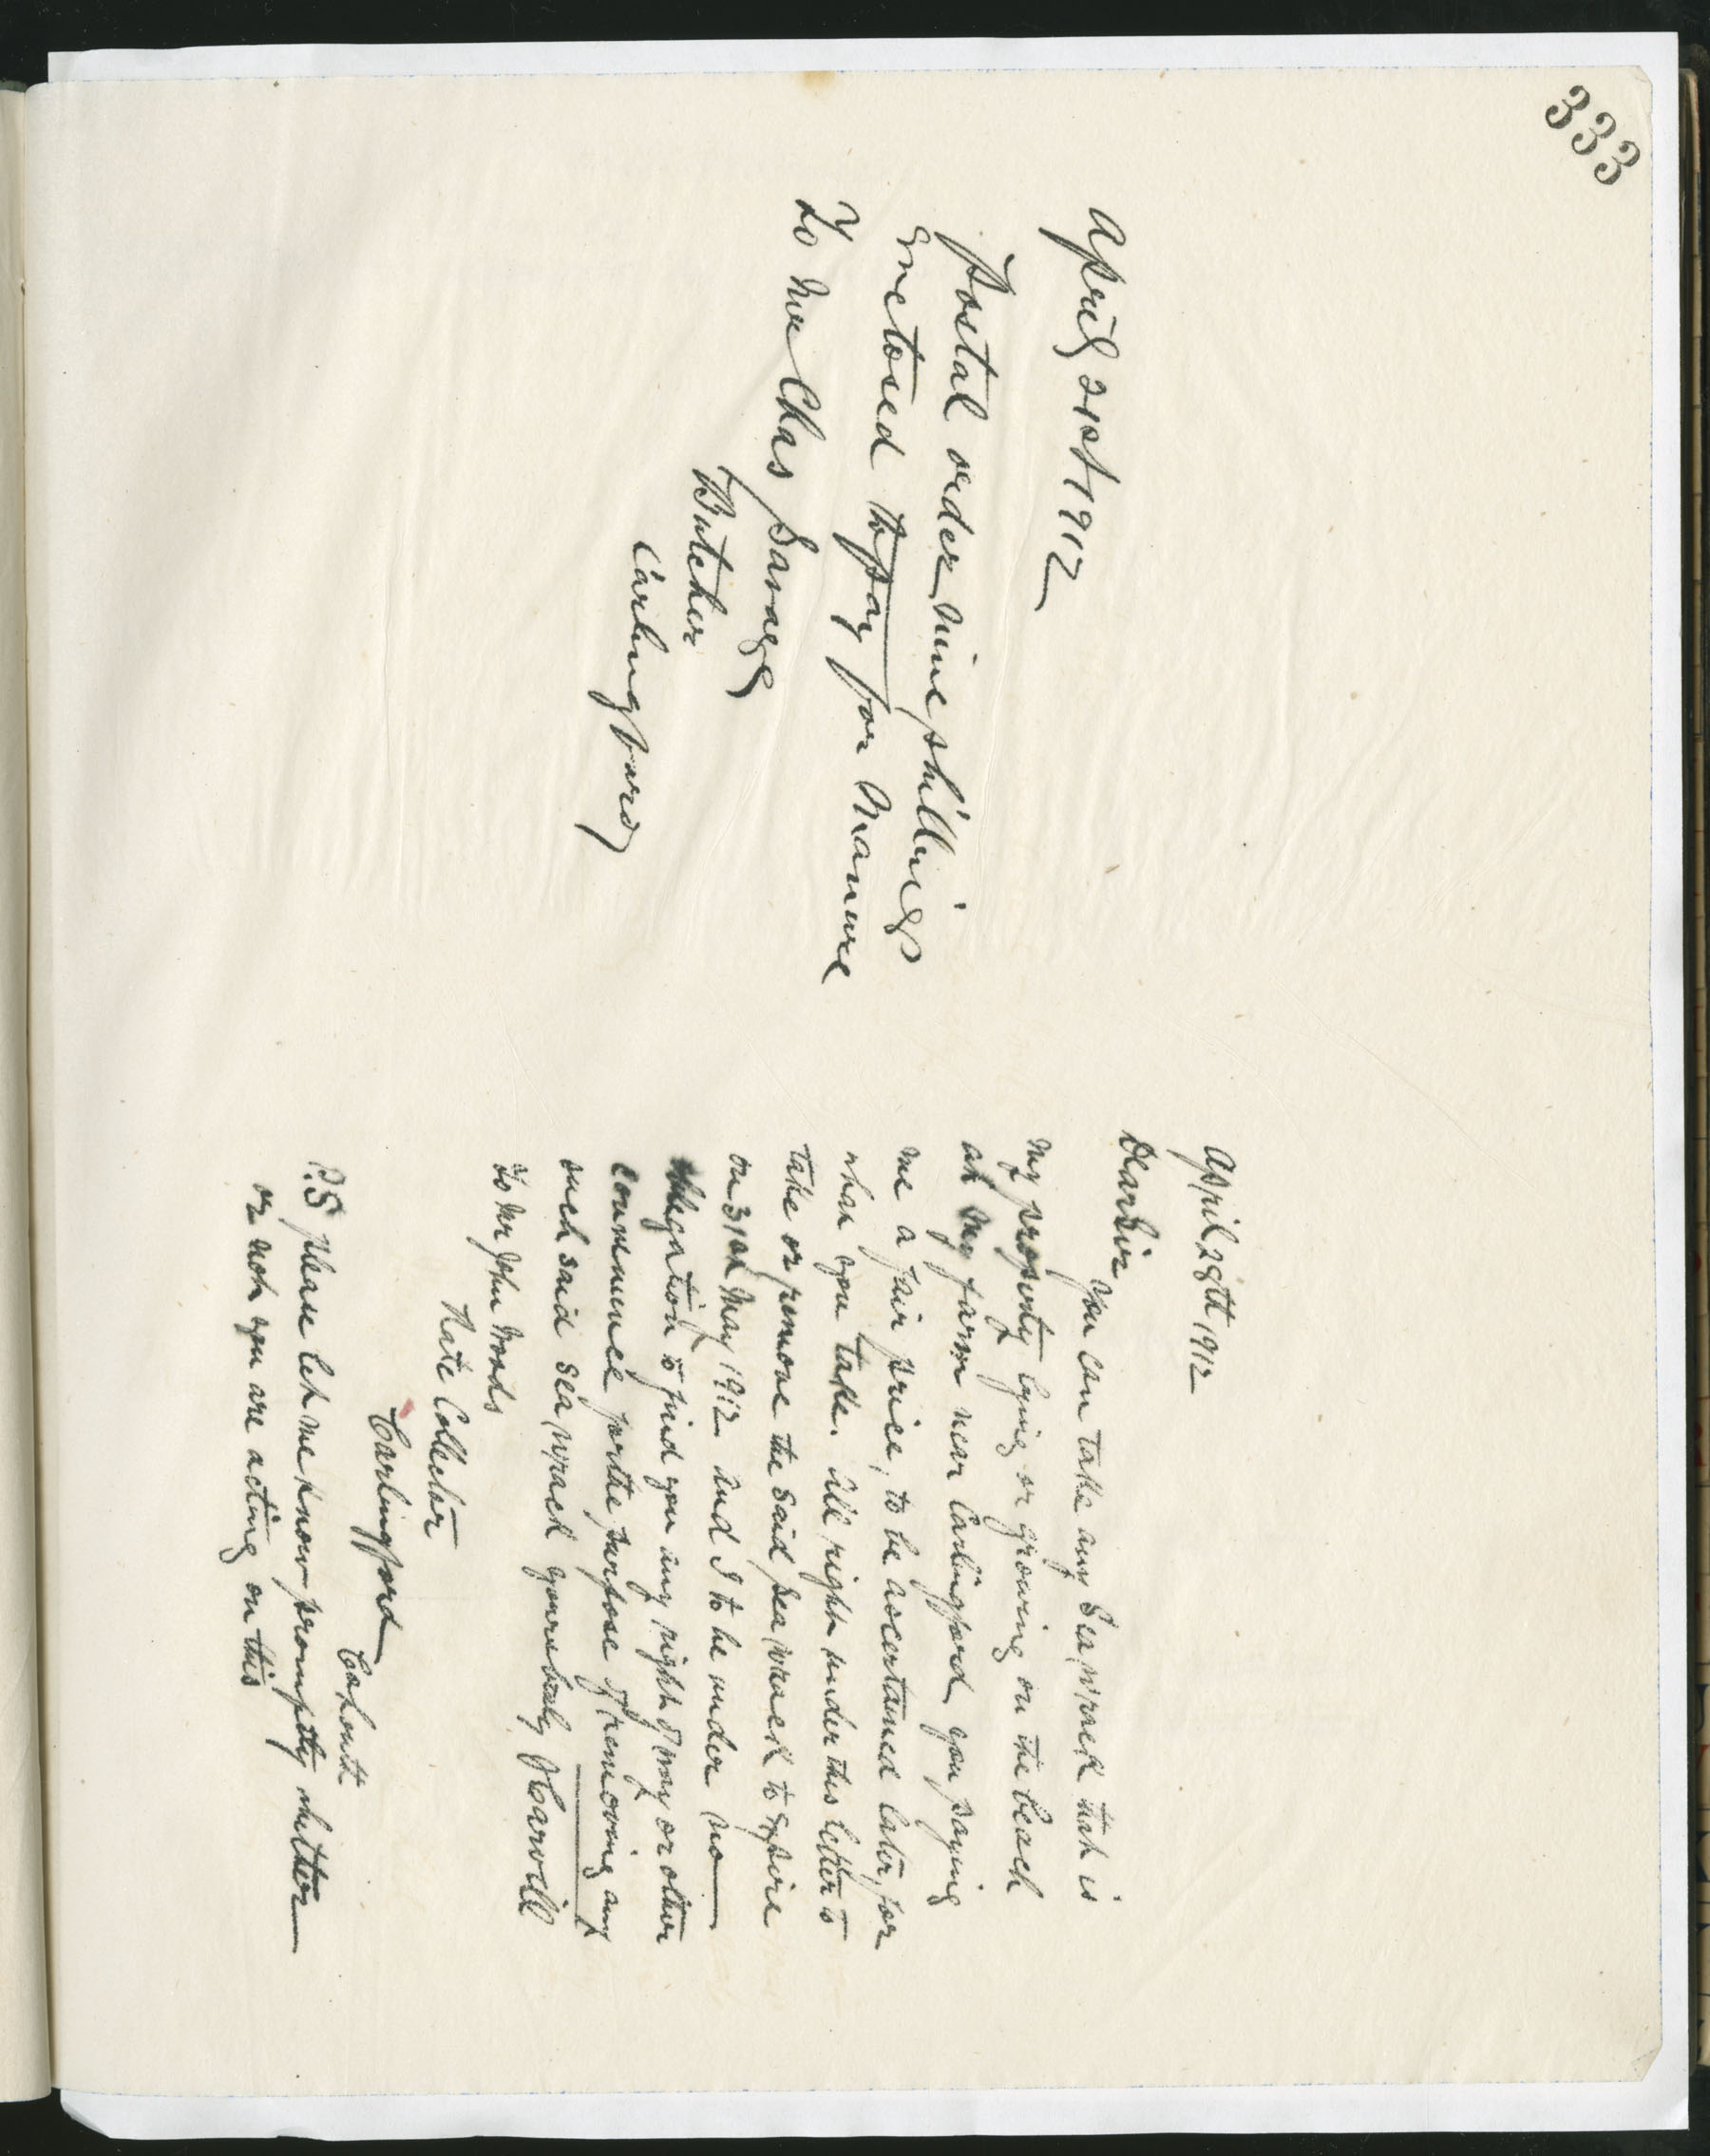 333
April 21st 1912
Postal order nine shillings
Enclosed to pay for Manure
To Mr Chas Savage
Butcher
Carlingford
April 28th 1912
Dear Sir
You can take any Sea wrack that is
my property lying or growing on the beach
at my farm near Carlingford you paying
me a fair price, to be ascertained later, for
what you take. All right under this letter to
take or remove the said sea wrack to Expire
on 31st May 1912 And I to be under no
obligation to find you any right of way or other
convenience for the purpose of removing any
such said sea wrack yours truly
To Mr John Woods
Rate Collector
Carlingford
Co Louth
P.S please let me know promptly whether
or not you are acting on this